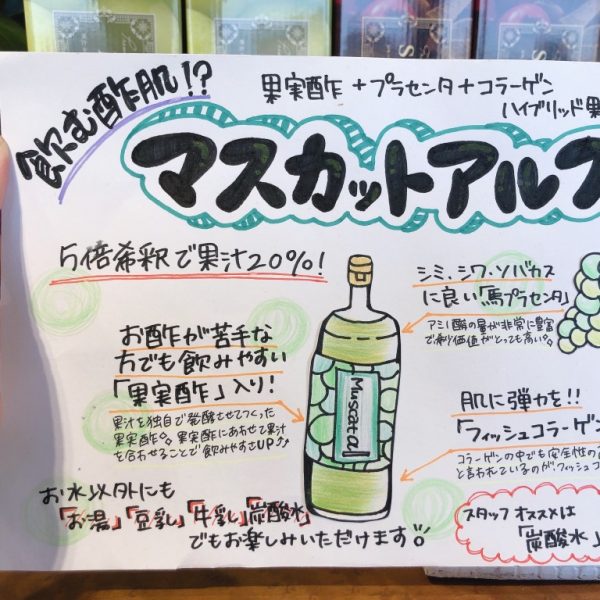 飲む酢肌!?
果実酢+プラセンタ+コラーゲン
ハイブリッド果
マスカットアル
5倍希釈で果汁20%!
お酢が苦手な
方でも飲みやすい
「果実酢」入り!
果汁を独自で発酵させてつくった
果実酢。果実酢にあわせて果汁
を合わせることで飲みやすさUP♪
シミ・シワ・ソバカス
に良い「馬プラセンタ」
アミノ酸の量が非常に豊富
価値がとっても高い。
Muscatal
肌に弾力を!!
「フィッシュコラーゲン
コラーゲンの中でも安全性の
と言われているのが、フィッシュコ
お水以外にも
「お湯」「豆乳」「牛乳」「炭酸水」
でもお楽しみいただけます。
スタッフオススメは
「炭酸水」